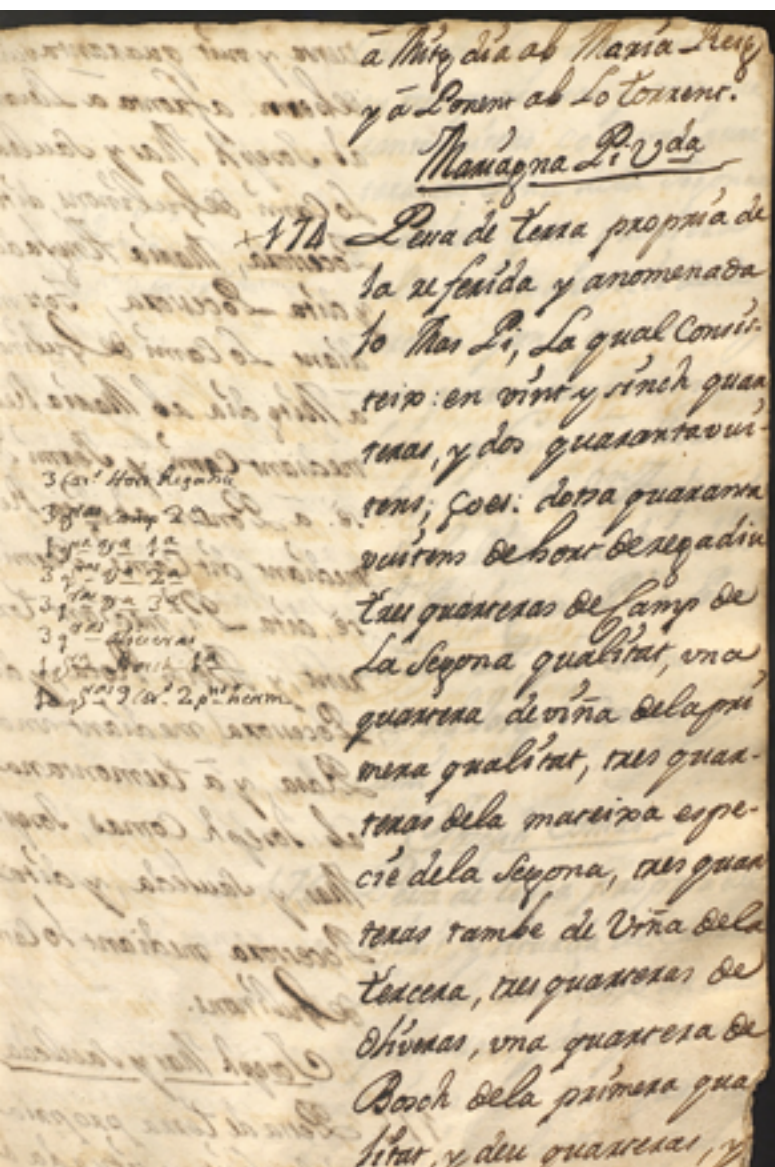 à Mitg dia ab Maria Reig
y à Ponent ab Lo torrent.
Mariagna Pi Vda
+174 Pessa de terra propria de
la referida y anomenada
lo Mas Pi, La qual Consis-
teix: en vint y sinch quar
teras, y dos quarantavui-
tens; ços: dotse quaranta
vuitens de hort de regadiu
tres quarteras de Camp de
La Segona qualitat, vna
quartera de viña dela pri
mera qualitat, tres quar-
teras dela mateixa espe-
cie dela Segona, tres quar
teras tambe de Viña dela
tercera, tres quarteras de
Oliveras, vna quartera de
Bosch dela primera qua
litat, y deu quarteras, y
3 Cor.s Hort Regadiu
3 q.ras camp 2.a
1 q.ra va 1a
3 q.ras va 2a
3 q.ras va 3a
3 q.ras oliveras
1 q.ra Bosch 1a
10 q.ras 9 Cor.s 2 p.ns herm